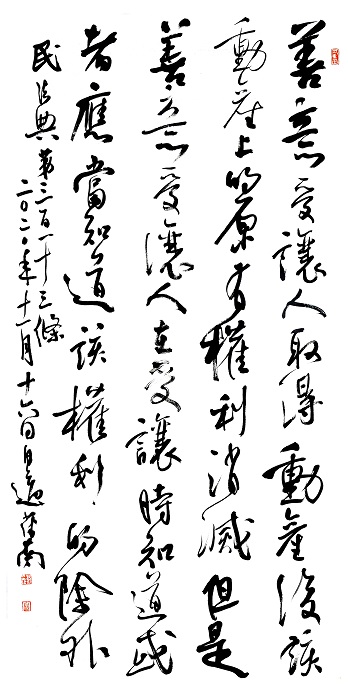 善意受讓人取得動產後該
動產上的原有權利消滅但是
善意受讓人在受讓時知道或
者應當知道該權利的除外
民法典第三百一十三條
二〇二〇年十一月十六日